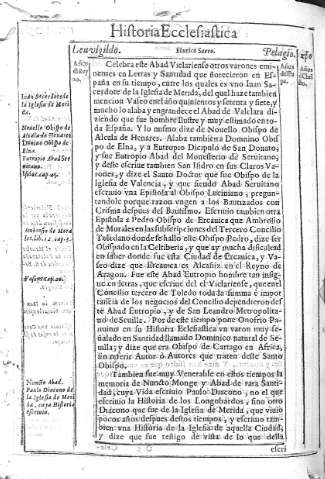 Historia Ecclesiastica
Leuvigildo.
Pelagio.
Celebra este Abad Viclariense otros varones emi
nenes en Letras y Santidad que florecieron en Es
paña en su tiempo, entre los quales es vno Iuan Sa
cerdote de la Iglesia de Merida, del qual haze tambien
mencion Vaseo en el año quinientos y setenta y siete, y
mucho lo alaba y engrandece el Abad de Valclara di
ziendo que fue hombre Ilustre y muy estimado en to
da España. Y lo mismo dize de Nouello Obispo de
Alcala de Henares. Alaba tambien a Domnino Obis
po de Elna, y a Eutropio Dicipulo de San Donato,
y fue Eutropio Abad del Monesterio de Seruitano,
y deste escriue tambien San Isidro en sus Claros Va
rones, y dize el Santo Doctor que fue Obispo de la
Iglesia de Valencia, y que siendo Abad Seruitano
escriuio vna Epistola al Obispo Luciniano, pregun
tandole porque razon vngen a los Bautizados con
Crisma despues del Bautismo. Escriuio tambien otra
Epistola a Pedro Obispo de Ercauica que Ambrosio
de Morales en las subscripciones del Tercero Concilio
Toledano donde se hallo este Obispo Pedro, dize ser
Obispado en la Celtiberia, y que ay mucha dificultad
en saber donde fue esta Ciudad de Ercauica, y Va
seo dize que Ercauica es Alcañiz en el Reyno de
Aragon. Fue este Abad Eutropio hombre tan insig
ne en letras, que escriue del el Viclariense, que en el
Concilio tercero de Toledo toda la summa e impor
tancia de los negocios del Concilio dependieron des
te Abad Eutropio, y de San Leandro Metropolita
no de Seuilla. Por deste tiempo pone Onofrio Pa
nuino en su Historia Ecclesiastica vn varon muy se
ñalado en Santidad llamado Dominico natural de Se
uilla; y dize que era Obispo de Cartago en Africa,
sin referir Autor o Autores que traten deste Santo
Obispo.
Tambien fue muy Venerable en estos tiempos la
memoria de Nuncto Monge y Abad de rara Santi
dad, cuya Vida escriuio Paulo Diacono, no el que
escriuio la Historia de los Longobardos, sino otro
Diacono que fue de la Iglesia de Merida, que viuio
pocos años despues destos tiempos, y escriuio tam
bien vna Historia de la Iglesia de aquella Ciudad,
y dize que fue testigo de vista de lo que della
escri
Iuan Sacerdote de
la Iglesia de Meri
da.
Nouello Obispo de
Alcala de Henares.
Domino Obispo
de Elna.
Eutropio Abad Ser
uitano.
Isidor. cap. 45.
Ambrosio de Mora
les lib. 12. cap. 3.
Nuncto Abad.
Paulo Diacono de
la Iglesia de Meri
da, cuya Historia
escriuio.